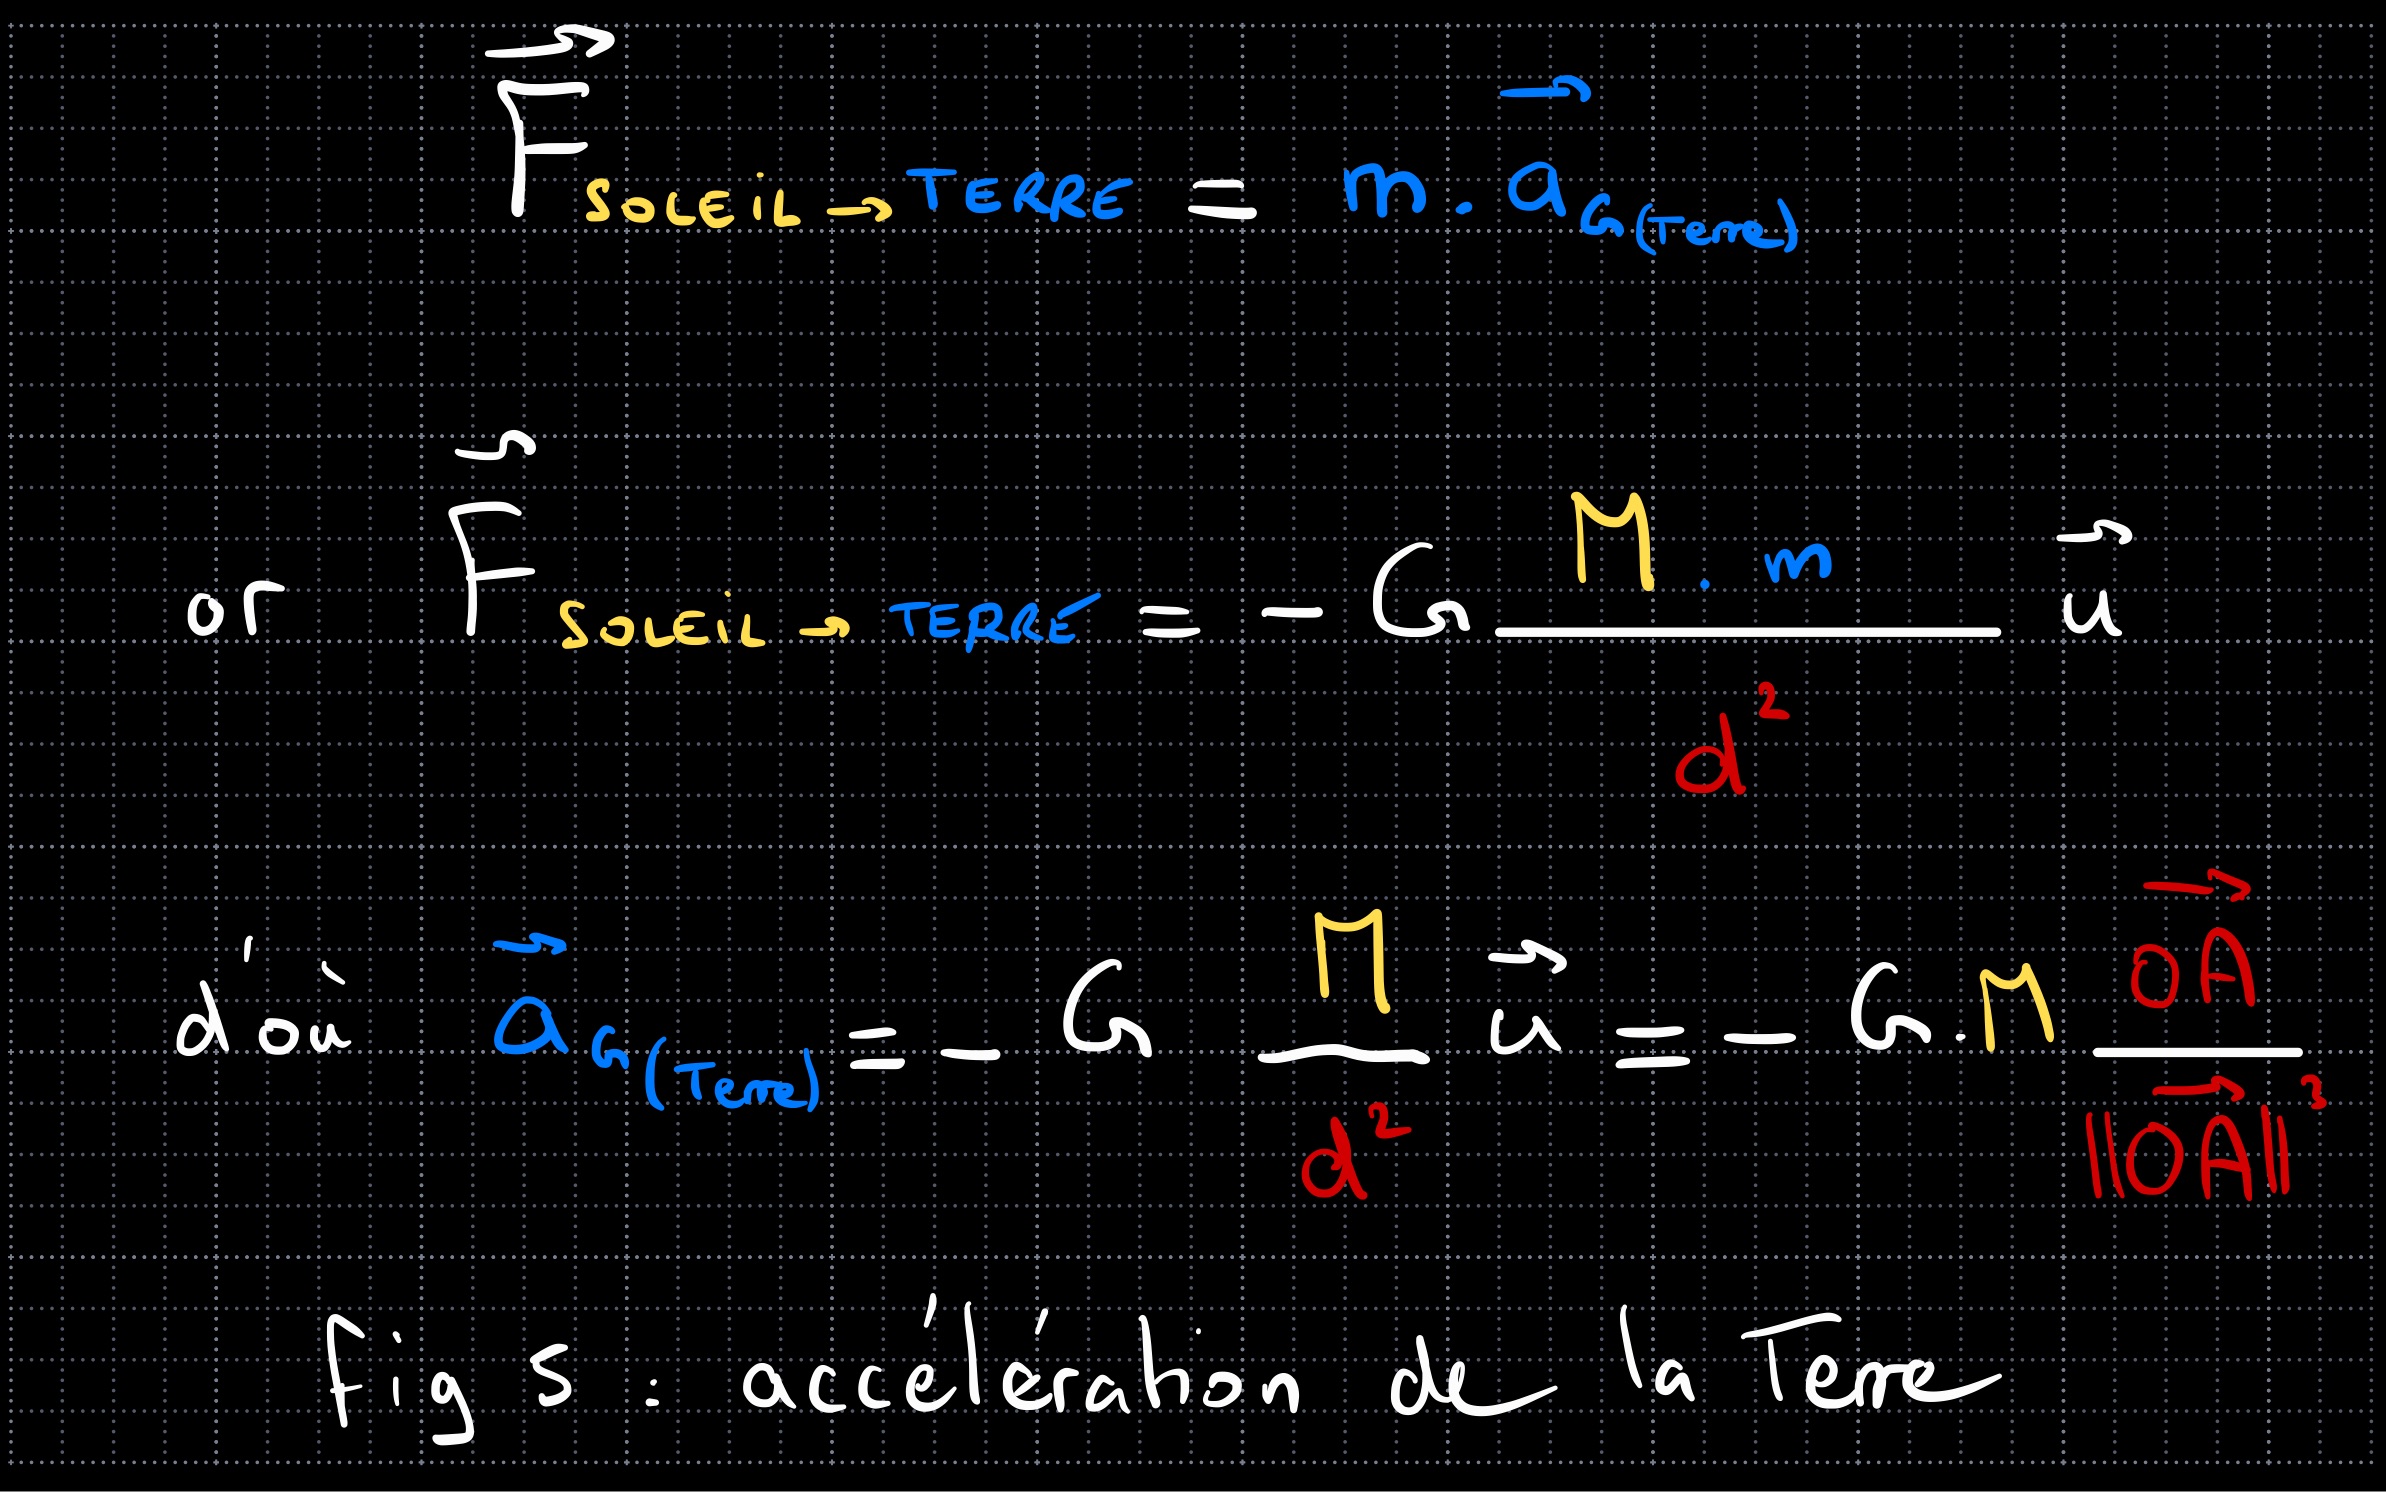 F⃗ SOLEIL → TERRE = m . a⃗ G(Terre)
or F⃗ SOLEIL → TERRE = - G (M . m / d²) u⃗
d'où a⃗ G(Terre) = - G (M / d²) u⃗ = - G.M (OA⃗ / ||OA⃗||³)
Fig 5 : accélération de la Terre